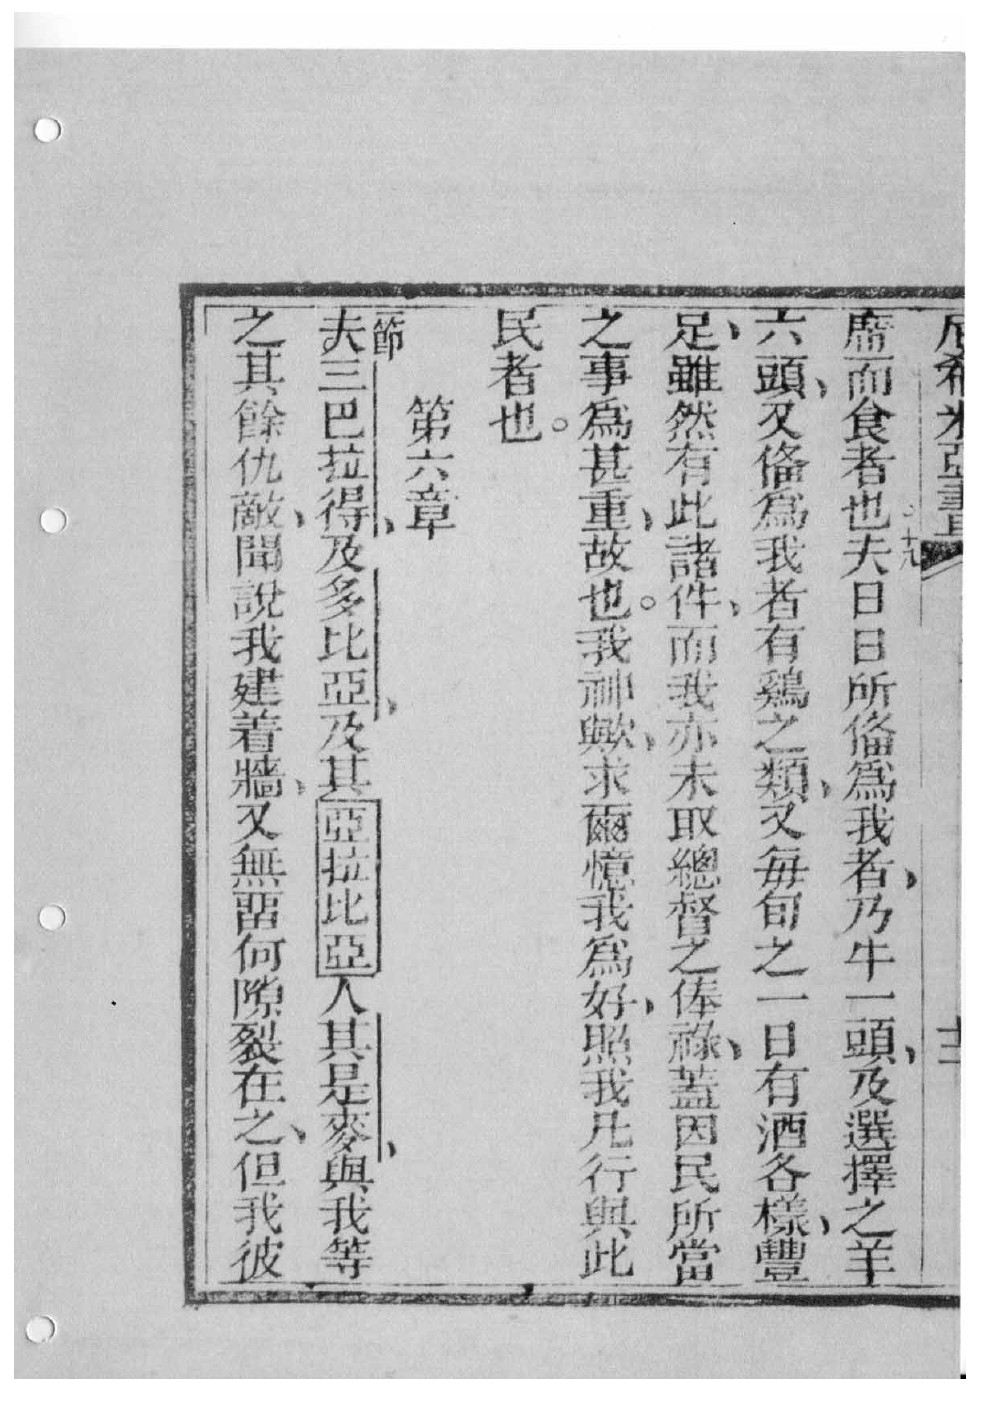 尼希米亞書 十二
席而食者也夫日日所俻為我者、乃牛一頭、及選擇之羊
六頭、又俻為我者有鷄之類、又毎旬之一日有酒各樣、豐
足、雖然有此諸件、而我亦未取總督之俸祿、蓋因民所當
之事為甚重、故也。十九我神歟、求爾憶我為好、照我凡行與此
民者也。
第六章
一節夫三巴拉得、及多比亞、及其亞拉比亞人其是麥、與我等
之其餘仇敵、聞說我建着牆、又無畱何隙裂在之、但我彼